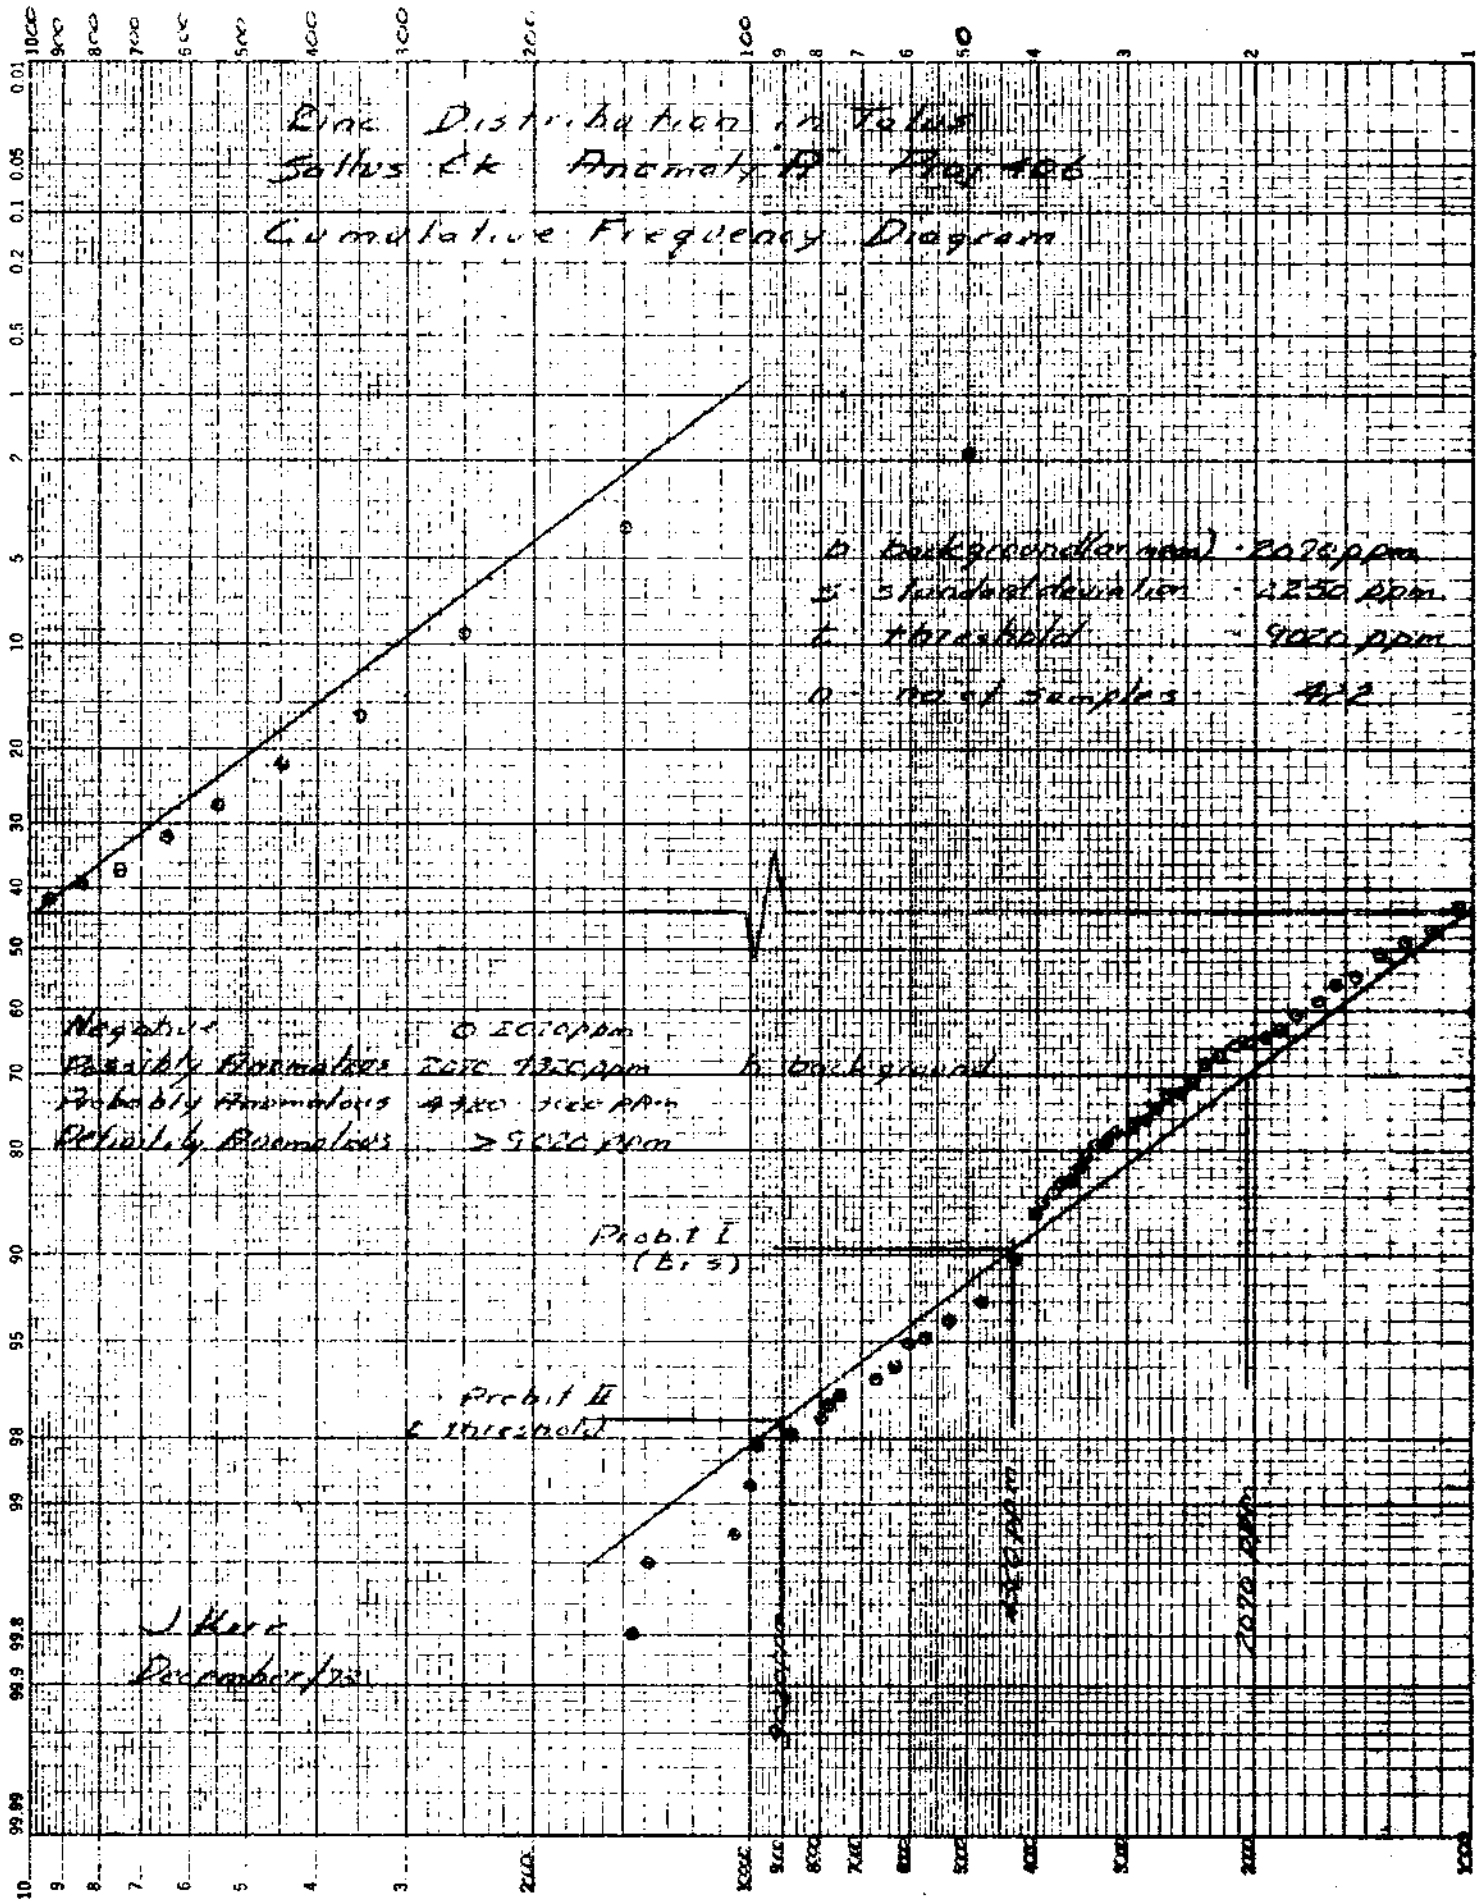 1000 900 800 700 600 500 400 300 200 100 9 8 7 6 50 4 3 2 1
0.01
0.05
0.1
0.2
0.5
1
2
5
10
20
30
40
50
60
70
80
90
95
98
99
99.8
99.9
99.99
Zinc Distribution in Talus
Sallus Ck Anomaly A Proj 406
Cumulative Frequency Diagram
b background (or mean) 2070 ppm
s standard deviation 2250 ppm
t threshold 9020 ppm
n no of samples 422
Negative 0
Possibly Anomalous
Probably Anomalous
Definitely Anomalous > 9020 ppm
b background
Probit I
Probit II
t threshold
ppm
2070 ppm
J Kerr
December/
10 9 8 7 6 5 4 3 2000 10000 9000 8000 7000 6000 5000 4000 3000 2000 1000